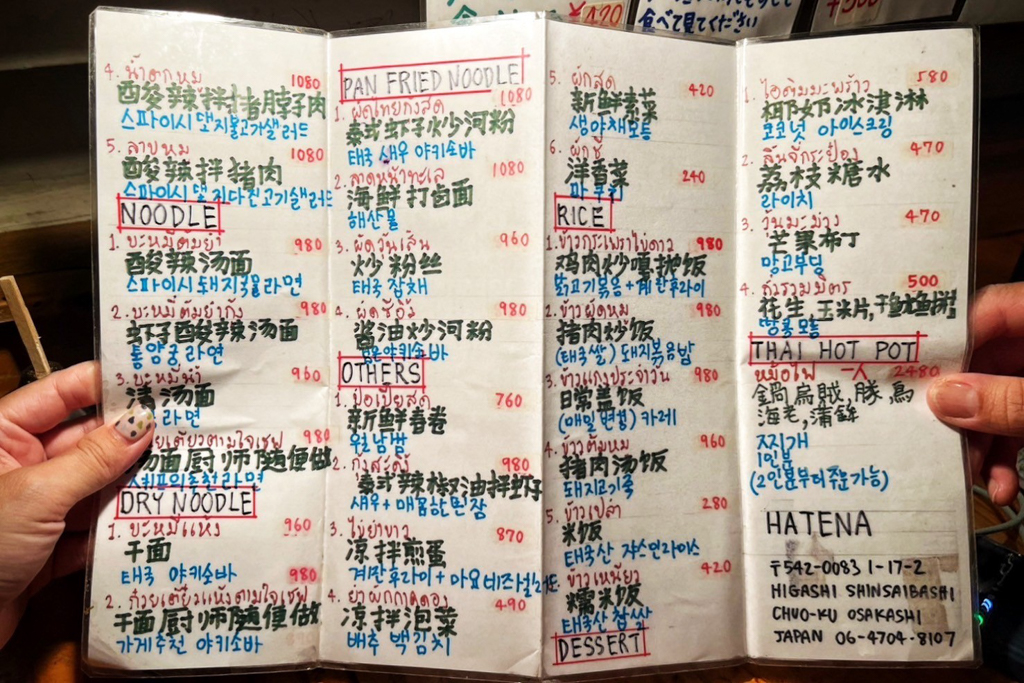 食べて見てください
4. น้ำตกหมู 1080
酸辣拌猪脖子肉
스파이시 돼지불고기샐러드
5. ลาบหมู 1080
酸辣拌猪肉
스파이시 돼지다진고기샐러드
NOODLE
1. บะหมี่ต้มยำ 980
酸辣汤面
스파이시돼지국물라면
2. บะหมี่ต้มยำกุ้ง 980
虾子酸辣汤面
똠얌꿍 라면
3. บะหมี่น้ำ 960
汤面
라면
980
汤面厨师随便做
DRY NOODLE
1. บะหมี่แห้ง 960
干面
태국 야키소바
2. ก๋วยเตี๋ยวแห้งตามใจเชฟ 980
干面厨师随便做
가게추천 야키소바
PAN FRIED NOODLE
1. ผัดไทยกุ้งสด 1080
泰式虾子炒河粉
태국 새우 야키소바
2. ลาดหน้าทะเล 1080
海鲜打卤面
해산물
3. ผัดวุ้นเส้น 960
炒粉丝
태국 잡채
4. ผัดซีอิ๊ว 980
酱油炒河粉
야키소바
OTHERS
1. ปอเปี๊ยสด 760
新鲜春卷
월남쌈
2. กุ้งสะดุ้ง 980
泰式辣椒油拌虾子
새우+매콤한된장
3. ไข่ยำขาว 870
凉拌煎蛋
계란후라이+마요네즈
4. ยำผักกาดดอง 490
凉拌泡菜
배추 백김치
5. ผักสด 420
新鲜素菜
생야채모듬
6. ผักชี 240
洋香菜
파쿠치
RICE
1. ข้าวกระเพราไข่ดาว 980
鸡肉炒嘎抛饭
닭고기볶음+계란후라이
2. ข้าวผัดหมู 980
猪肉炒饭
(태국쌀) 돼지볶음밥
3. ข้าวแกงประจำวัน 980
日常盖饭
(매일변경) 카레
4. ข้าวต้มหมู 960
猪肉汤饭
돼지고기죽
5. ข้าวเปล่า 280
米饭
태국산 쟈스민라이스
6. ข้าวเหนียว 420
糯米饭
태국산 찹쌀
DESSERT
1. ไอติมมะพร้าว 580
椰奶冰淇淋
코코넛 아이스크림
2. ลิ้นจี่กระป๋อง 470
荔枝糖水
라이치
3. วุ้นมะม่วง 470
芒果布丁
망고부딩
4. ถั่วรวมมิตร 500
花生,玉米片,
땅콩모듬
THAI HOT POT
หม้อไฟ 一人 2480
鍋 烏賊, 豚, 鳥
海老, 蒲鉾
찌개
1인분
(2인분부터주문가능)
HATENA
〒542-0083 1-17-2
HIGASHI SHINSAIBASHI
CHUO-KU OSAKASHI
JAPAN 06-4704-8107